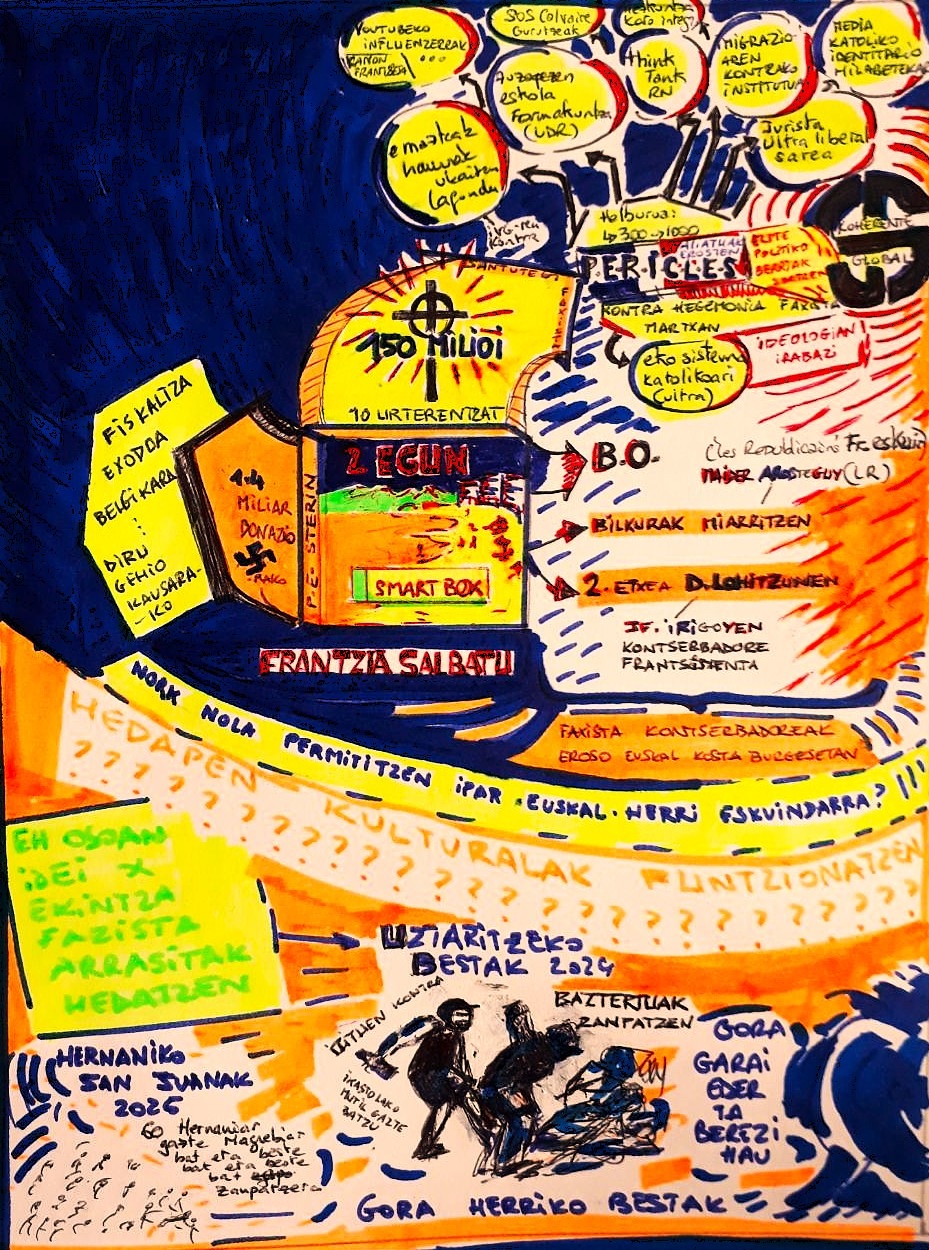 YOUTUBEKO
INFLUENZERRAK
RAMON
FRANTZIA
...
SOS Calvaire
Gurutzeak
Think
Tank
RN
MIGRAZIO-
AREN
KONTRAKO
iNSTITUTUA
MEDIA
KATOLIKO
iDENTITARIO
MILABETZEKAR
Auzapezen
eskola
Formakuntza
(UDR)
emazteak
haurrak
ukaiten
lagondu
Jurista
Ultra liberal
sarea
ivg-ren
kontra
Helburua:
↳ 300 → 1000
P.E.R.I.C.L.E.S
ALIATUAK
EROSTEN
ELITE
POLITIKO
BERRIAK
KOHERENTE
GLOBAL
KONTRA HEGEMONIA FAXISTA
MARTXAN
iDEOLOGIAN
iRABAZI
eko sistema
katolikoari
(vitra)
150 MILIOI
10 URTERENTZAT
FISKALTZA
EXODOA
BELGIKARA
DIRU
GEHIO
KAUSARA-
-KO
1.4
MILIAR
DONAZIO
RAKO
P.E. STERIN
2 EGUN
SMART BOX
FRANTZIA SALBATU
B.O.
(les Republicains) Fr. eskuin
MAIDER AROSTEGUY (LR)
BILKURAK MIARRITZEN
2. ETXEA D. LOHITZUNEN
JF. iRIGOYEN
KONTSERBADORE
FRANTSISTENTA
FAXISTA KONTSERBADOREAK
EROSO EUSKAL KOSTA BURGESETAN
NORK NOLA PERMITITZEN iPAR EUSKAL HERRi ESKUINDARRA?
HEDAPEN KULTURALAK FUNTZIONATZEN
? ? ? ? ? ? ? ? ? ? ? ? ? ? ? ? ? ? ? ? ? ?
EH OSOAN
iDEi X
EKiNTZA
FAZISTA
ARRASITAK
HEDATZEN
UZTARITZEKO
BESTAK 2024
IKASTOLAKO
MUTIL GAZTE
BATZU
KONTRA
BAZTERTUAK
ZANPATZEN
GORA
GARAI
EDER
TA
BEREZI
HAU
HERNANIKO
SAN JUANAK
2025
60 Hernaniar
gazte Magrebiar
bat eta beste
bat eta beste
bat
zanpatzera
GORA HERRIKO BESTAK